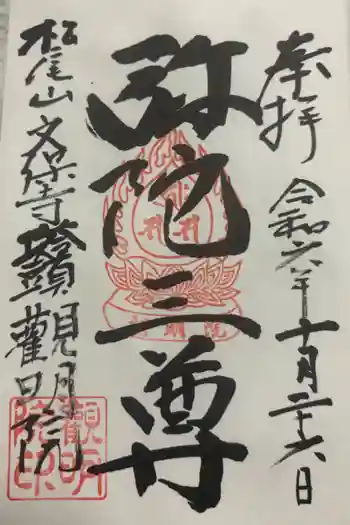 奉拝
令和六年十月二十六日
弥陀三尊
松尾山文保寺
観明院
觀明院印